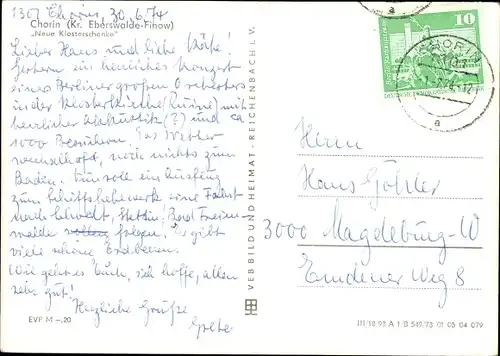 1301 Chorin, 30.6.74
Chorin (Kr. Eberswalde-Finow)
„Neue Klosterschenke"
Lieber Hans und liebe Käte!
Gestern ein herrliches Konzert
eines Berliner großen Orchesters
in der Klosterkirche (Ruine) mit
herrlicher Akkustik (?) und ca
1000 Besuchern. Das Wetter
wechselhaft, noch nichts zum
Baden. Nun soll ein Ausflug
zum Schiffshebewerk eine Fahrt
nach Schwedt, Stettin, Bad Freien-
walde folgen. Es gibt
viele schöne Erdbeeren.
Wie geht es Euch, ich hoffe, allen
sehr gut!
Herzliche Grüße
EVP M -,20
VEB BILD UND HEIMAT · REICHENBACH I. V.
10
CHORIN
a
Herrn
Hans Göhler
3000 Magdeburg-W
Emdener Weg 8
III/18 93 A 1/B 549/73 01 05 04 079